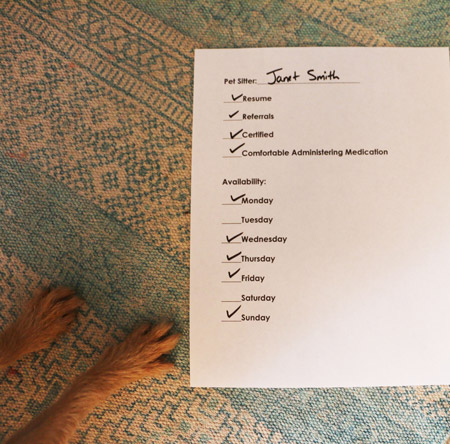 Pet Sitter: Janet Smith
✓ Resume
✓ Referrals
✓ Certified
✓ Comfortable Administering Medication
Availability:
✓ Monday
Tuesday
✓ Wednesday
✓ Thursday
✓ Friday
Saturday
✓ Sunday